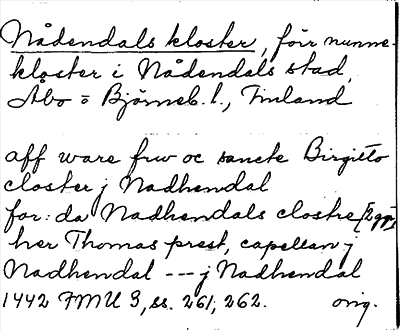 Nådendals kloster, förr nunne-
kloster i Nådendals stad,
Åbo o Björneb. l., Finland
aff ware frw oc sancte Birgitto
closter j Nadhendal
for: da Nadhendals clostre [2ggr],
her Thomas prest, capellan j
Nadhendal --- j Nadhendal
1442 FMU 3, ss. 261, 262. orig.